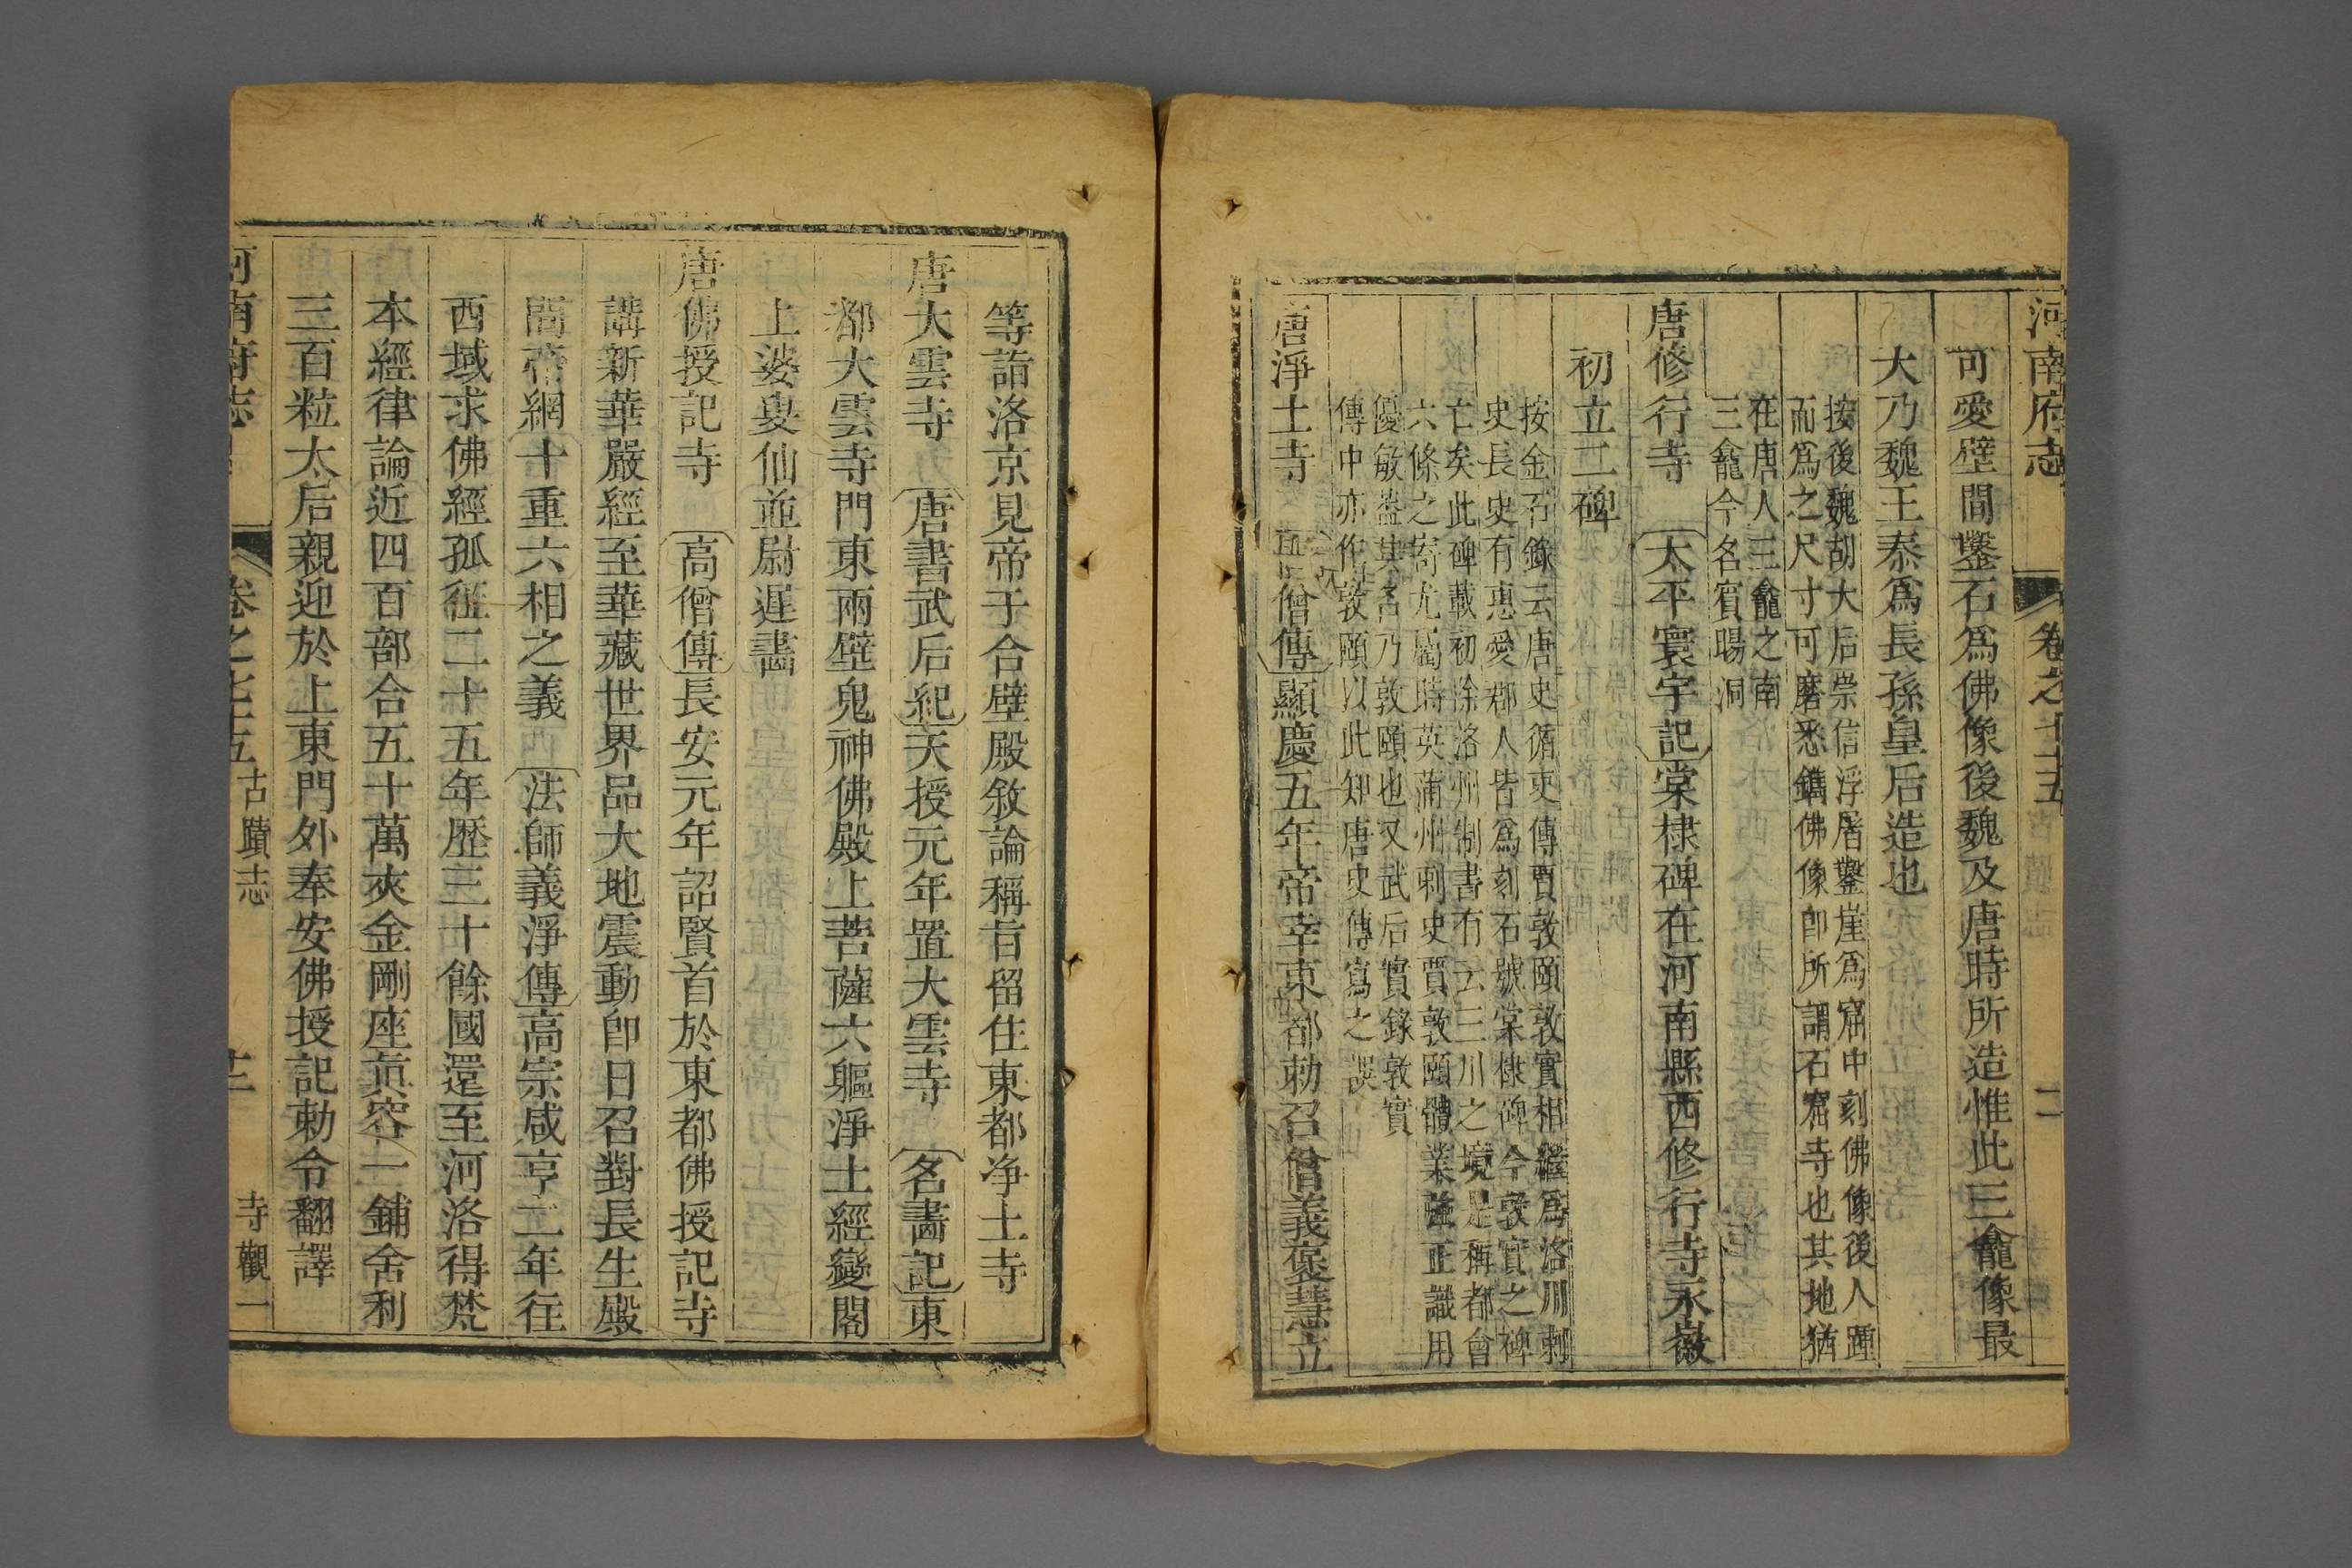 河南府志
卷之七十五
古蹟志
可愛壁間鑿石爲佛像後魏及唐時所造惟此三龕像最
大乃魏王泰爲長孫皇后造也
按後魏胡大后崇信浮屠鑿崖爲窟中刻佛像後人踵
而爲之尺寸可磨悉鐫佛像卽所謂石窟寺也其地猶
在唐人三龕之南
三龕今名賓暘洞
唐修行寺 太平寰宇記棠棣碑在河南縣西修行寺永徽
初立二碑
按金石錄云唐史循吏傳賈敦頤敦實相繼爲洛州刺
史長史有惠愛郡人皆爲刻石號棠棣碑今敦實之碑
亡矣此碑載初除洛州制書有云三川之境是稱都會
六條之寄尤屬時英蒲州刺史賈敦頤體業強正識用
優敏蓋其名乃敦頤也又武后實錄敦實
傳中亦作敦頤以此知唐史傳寫之誤
唐淨土寺 僧傳顯慶五年帝幸東都勅召僧義褒慧立
等詣洛京見帝于合璧殿敘論稱旨留住東都净土寺
唐大雲寺 唐書武后紀天授元年置大雲寺 名畫記東
都大雲寺門東兩壁鬼神佛殿上菩薩六軀淨土經變閣
上婆叟仙並尉遲畫
唐佛授記寺 高僧傳長安元年詔賢首於東都佛授記寺
講新華嚴經至華藏世界品大地震動卽日召對長生殿
問帝網十重六相之義 法師義淨傳高宗咸亨二年往
西域求佛經孤征二十五年歷三十餘國還至河洛得梵
本經律論近四百部合五十萬夾金剛座眞容一鋪舍利
三百粒太后親迎於上東門外奉安佛授記寺勅令翻譯
河南府志
卷之七十五
古蹟志
寺觀一